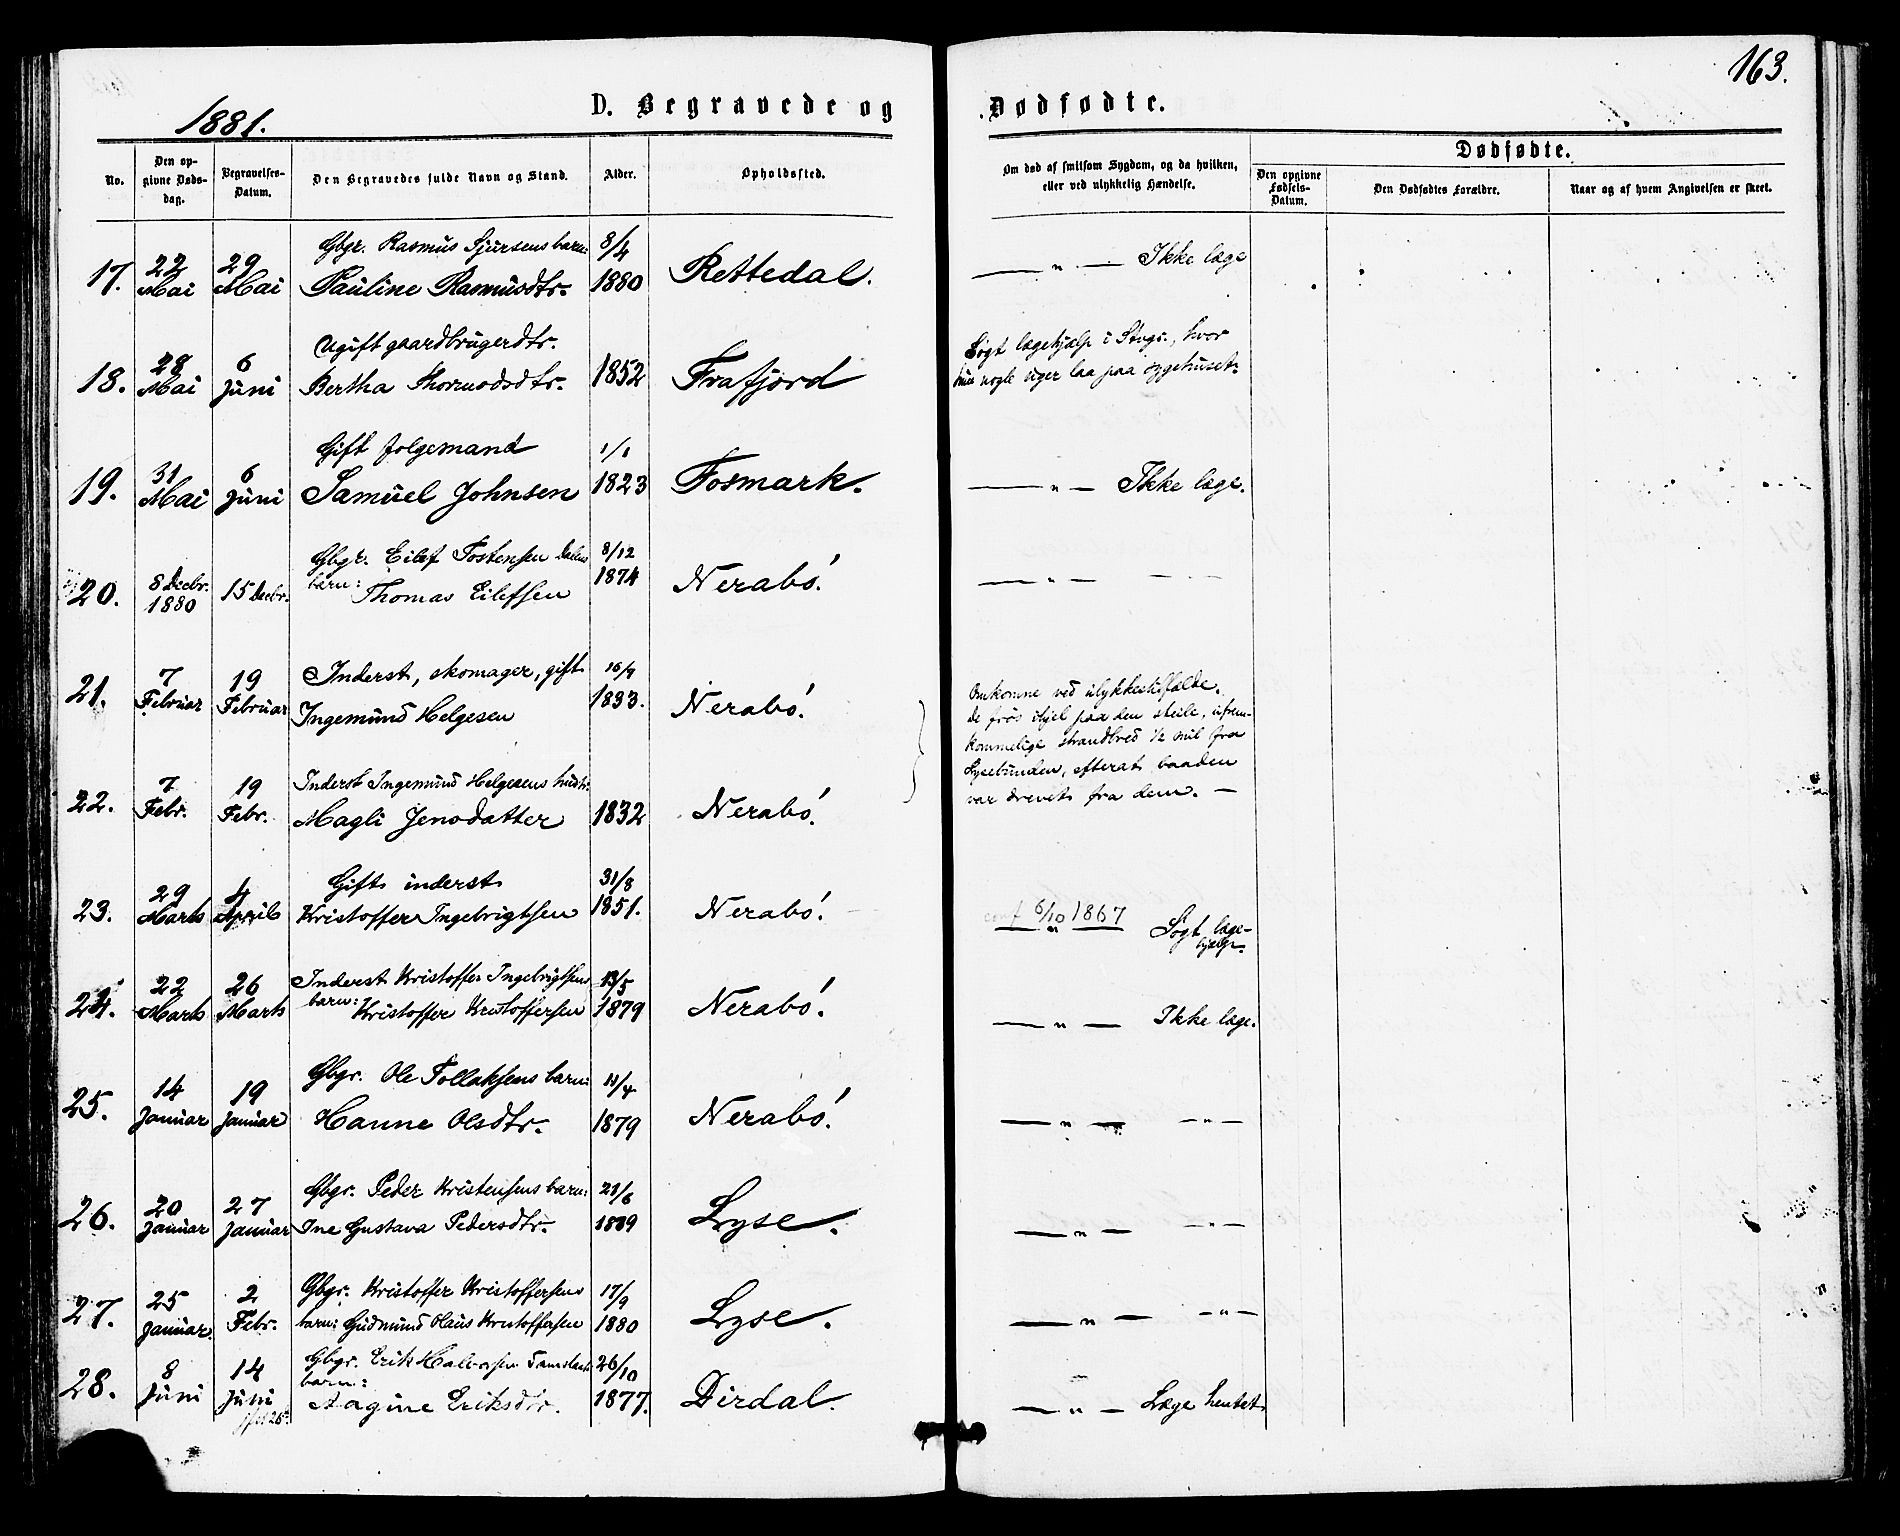 163.
1881.
D. Begravede og Dødfødte.
No.
Den opgivne Døds-dag.
Begravelses-Datum.
Den Begravedes fulde Navn og Stand.
Alder.
Opholdssted.
Om død af smitsom Sygdom, og da hvilken,
eller ved ulykkelig Hændelse.
Dødfødte.
Den opgivne Fødsels-Datum.
Den Dødfødtes Forældre.
Naar og af hvem Angivelsen er skeet.
Gbgr. Rasmus Sjursens barn: 8/4
17. 22 Mai 29 Mai Pauline Rasmusdtr. 1880 Rettedal. — " — Ikke læge
ugift gaardbrugerdtr.
18. 28 Mai 6 Juni Bertha Thormodsdtr. 1852 Frafjord
Søgt lægehjælp i Stvgr., hvor
hun nogle uger laa paa sygehuset.
Gift folgemand 1/1
19. 31 Mai 6 Juni Samuel Johnsen 1823 Fosmark. — " — Ikke læge.
Gbgr. Eilef Tostensen Dalens 8/12
20. 8 Decbr. 1880 15 Decbr. barn: Thomas Eilefsen 1874 Nerabó. — " — — " —
Inderst, skomager, gift 16/9
21. 7 Februar 19 Februar Ingemund Helgesen 1833. Nerabó.
Omkomne ved ulykkestilfælde.
de frøs ihjel paa den steile, ufrem-
kommelige strandbred 1/2 mil fra
Lysebunden, efterat baaden
var drevet fra dem. —
Inderst Ingemund Helgesens hustr:
22. 7 Febr. 19 Febr. Magli Jensdatter 1832 Nerabó.
Gift inderst 31/8
23. 29 Marts 4 April Kristoffer Ingebrigtsen 1851. Nerabó. conf 6/10 1867
— " — Søgt læge-
hjælp.
Inderst Kristoffer Ingebrigtsens 13/5
24. 22 Marts 26 Marts barn: Kristoffer Kristoffersen 1879 Nerabó. — " — Ikke læge.
Gbgr. Ole Tollaksens barn: 11/4
25. 14 Januar 19 Januar Hanne Olsdtr. 1879 Nerabó. — " — — " —
Gbgr. Peder Kristensens barn: 21/6
26. 20 Januar 27 Januar Ine Gustava Pedersdtr. Lyse. — " — — " —
Gbgr. Kristoffer Kristoffersens 17/9
27. 25 Januar. 2 Febr. barn: Gudmund Olaus Kristoffersen 1880 Lyse. — " — — " —
Gbgr. Erik Halvorsen 26/10
28. 8 Juni 14 Juni barn: Aagine Eriksdtr. 1877. Dirdal. — " — Læge hentet.